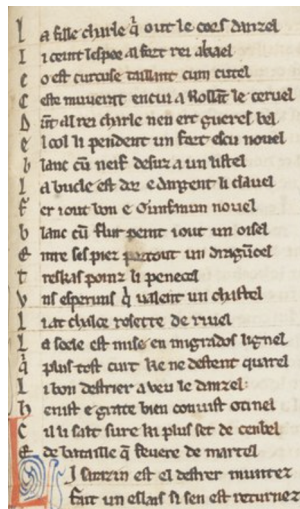 L a fille charle q̄ out le cors danzel
L i ceint lespee al fort rei akael
C o est curcuse taillant cum cutel
C este muverat encui a Rollāt le cervel
D ūt al rei charle nen ert gueres bel
E l col li pendent un fort escu novel
B lanc cū neif desuz a un listel
L a bucle est dor e dargent li clavel
F er iout bon e gunfanun novel
B lanc cū flur peint iout un oisel
E ntre ses piez portout un dragūcel
T reskas poinz li peneel
V ns esperuns q̄ valent un chastel
L i at chalce rosette de rivel
L a sele est mise en migrados lignel
Q̄ plus tost curt ke ne destent quarel
L i bon destrier a veu le danzel
H enist e grate bien conuist otinel
C il li salt sure ki plus set de cenbel
E de bataille q̄ fevere de martel
L i sarazin est el destrer muntez
fait un eslais si sen est returnez